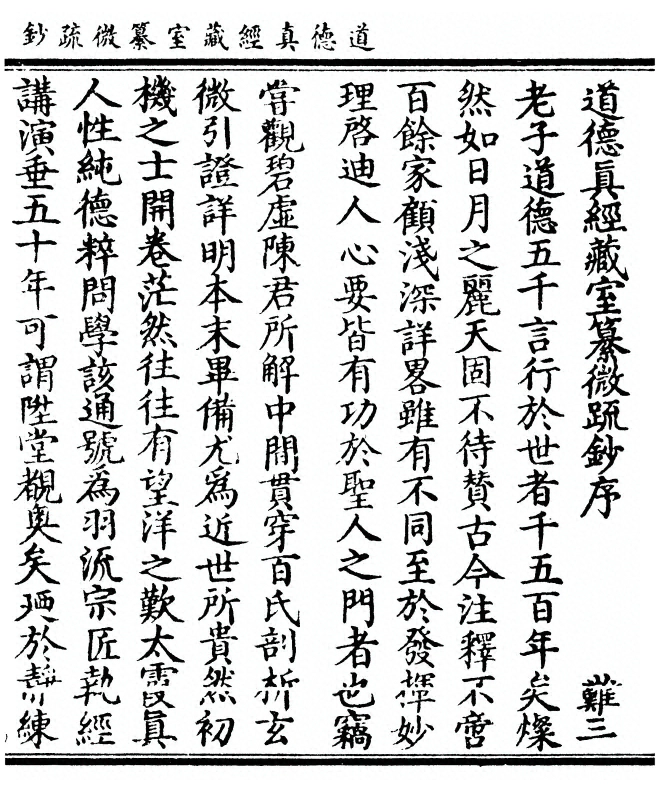 道德真經藏室纂微疏鈔
道德眞經藏室纂微疏鈔序
難三
老子道德五千言行於世者千五百年矣燦
然如日月之麗天固不待賛古今注釋不啻
百餘家顧淺深詳畧雖有不同至於發揮妙
理啓迪人心要皆有功於聖人之門者也竊
嘗觀碧虛陳君所解中間貫穿百氏剖析玄
微引證詳明本末畢備尤爲近世所貴然初
機之士開卷茫然往往有望洋之歎太霞眞
人性純德粹問學該通號爲羽流宗匠執經
講演垂五十年可謂陞堂覩奧矣廼於靜練